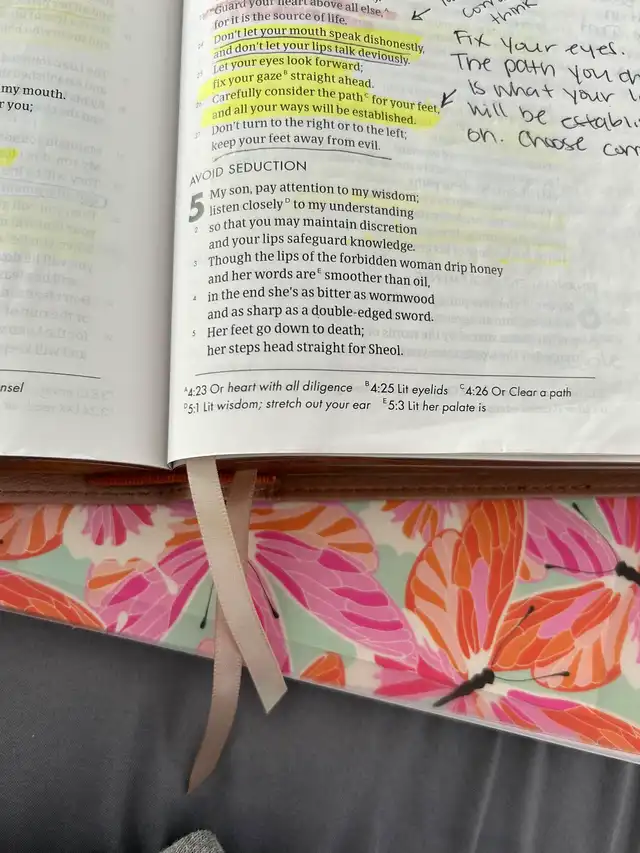 my mouth.
r you;
nsel
Guard your heart above all else,ᴬ
for it is the source of life.
24 Don't let your mouth speak dishonestly,
and don't let your lips talk deviously.
25 Let your eyes look forward;
fix your gazeᴮ straight ahead.
26 Carefully consider the pathᶜ for your feet,
and all your ways will be established.
27 Don't turn to the right or to the left;
keep your feet away from evil.
AVOID SEDUCTION
5 My son, pay attention to my wisdom;
listen closelyᴰ to my understanding
2 so that you may maintain discretion
and your lips safeguard knowledge.
3 Though the lips of the forbidden woman drip honey
and her words areᴱ smoother than oil,
4 in the end she's as bitter as wormwood
and as sharp as a double-edged sword.
5 Her feet go down to death;
her steps head straight for Sheol.
ᴬ4:23 Or heart with all diligence ᴮ4:25 Lit eyelids ᶜ4:26 Or Clear a path
ᴰ5:1 Lit wisdom; stretch out your ear ᴱ5:3 Lit her palate is
think
Fix your eyes.
The path you
is what your
will be establi
on. Choose